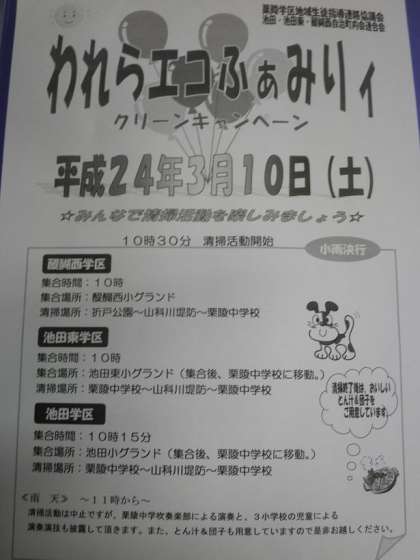 栗陵学区地域生徒指導連絡協議会
池田・池田東・醍醐西自治町内会連合会
われらエコふぁみりィ
クリーンキャンペーン
平成24年3月10日(土)
☆みんなで清掃活動を楽しみましょう☆
10時30分 清掃活動開始
小雨決行
醍醐西学区
集合時間:10時
集合場所:醍醐西小グランド
清掃場所:折戸公園〜山科川堤防〜栗陵中学校
池田東学区
集合時間:10時
集合場所:池田東小グランド(集合後、栗陵中学校に移動。)
清掃場所:栗陵中学校〜山科川堤防〜栗陵中学校
池田学区
集合時間:10時15分
集合場所:池田小グランド(集合後、栗陵中学校に移動。)
清掃場所:栗陵中学校〜山科川堤防〜栗陵中学校
清掃終了後は、おいしい
とん汁&団子を
ご用意しています。
≪雨 天≫ 〜11時から〜
清掃活動は中止ですが、栗陵中学校吹奏楽部による演奏と、3小学校の児童による
演奏演技も披露して頂きます。また、とん汁&団子も用意していますので是非お越しください。